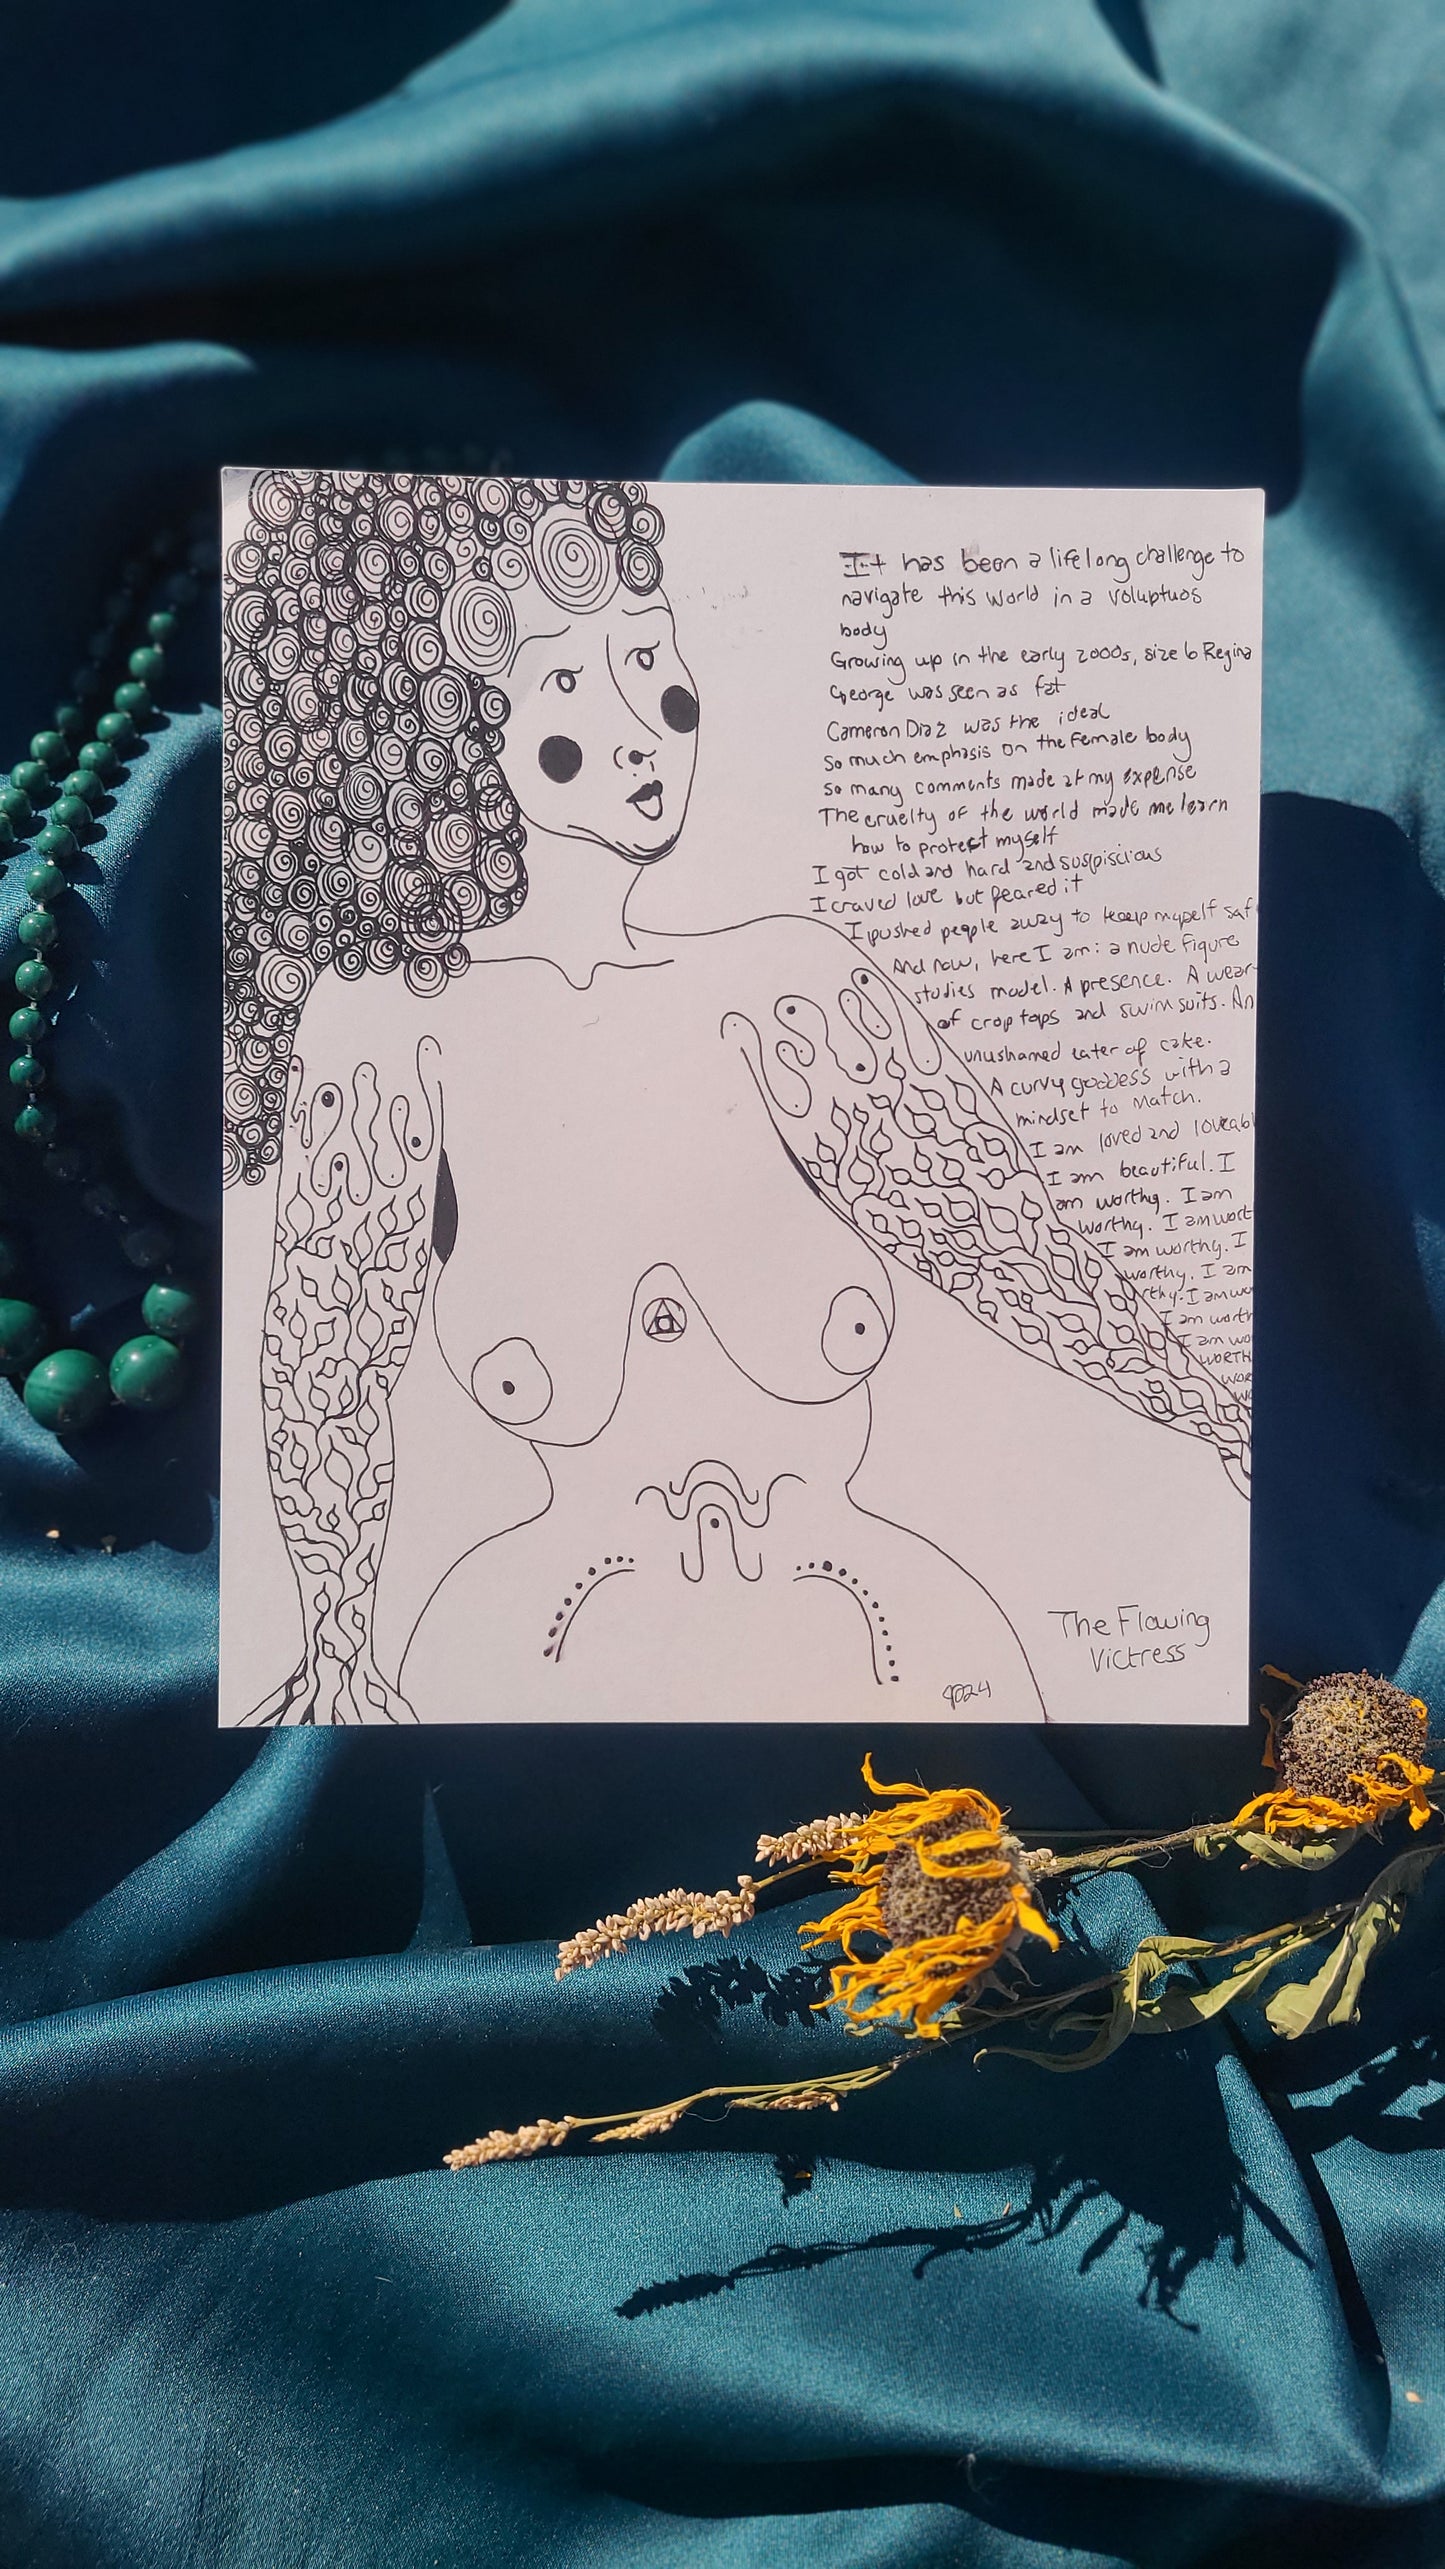 It has been a lifelong challenge to
navigate this world in a voluptuos
body
Growing up in the early 2000s, size 6 Regina
George was seen as fat
Cameron Diaz was the ideal
so much emphasis on the female body
so many comments made at my expense
The cruelty of the world made me learn
how to protect myself
I got cold and hard and suspiscious
I craved love but feared it
I pushed people away to keep myself saf
And now, here I am: a nude figure
studies model. A presence. A wear
of crop tops and swimsuits. An
unushamed eater of cake.
A curvy goddess with a
mindset to match.
I am loved and loveabl
I am beautiful. I
am worthy. I am
worthy. I am wort
I am worthy. I
worthy. I am
rthy. I am wo
I am worth
I am wo
WORTH
WOR
WO
The Flowing
Victress